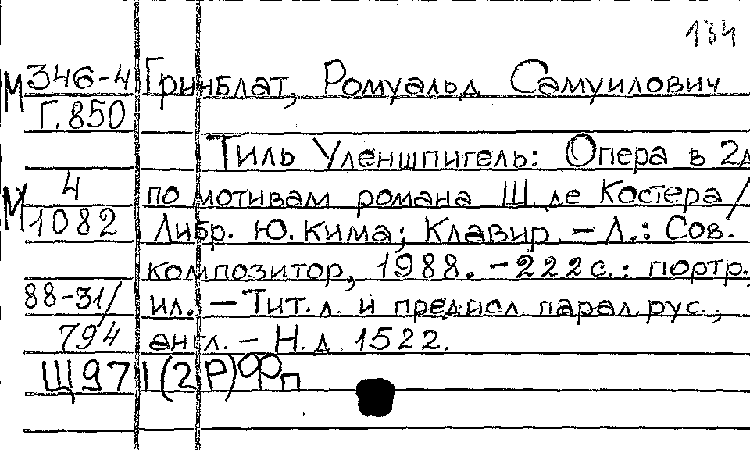 134
М 346-4 Гринблат, Ромуальд Самуилович
Г.850
Тиль Уленшпигель: Опера в 2д
М 4 по мотивам романа Ш. де Костера /
1082 Либр. Ю. Кима; Клавир. - Л.: Сов.
композитор, 1988. - 222 с.: портр.,
88-31/ ил. - Тит. л. и предисл. парал. рус.,
794 англ. - Н. д. 1522.
Щ971(2Р)